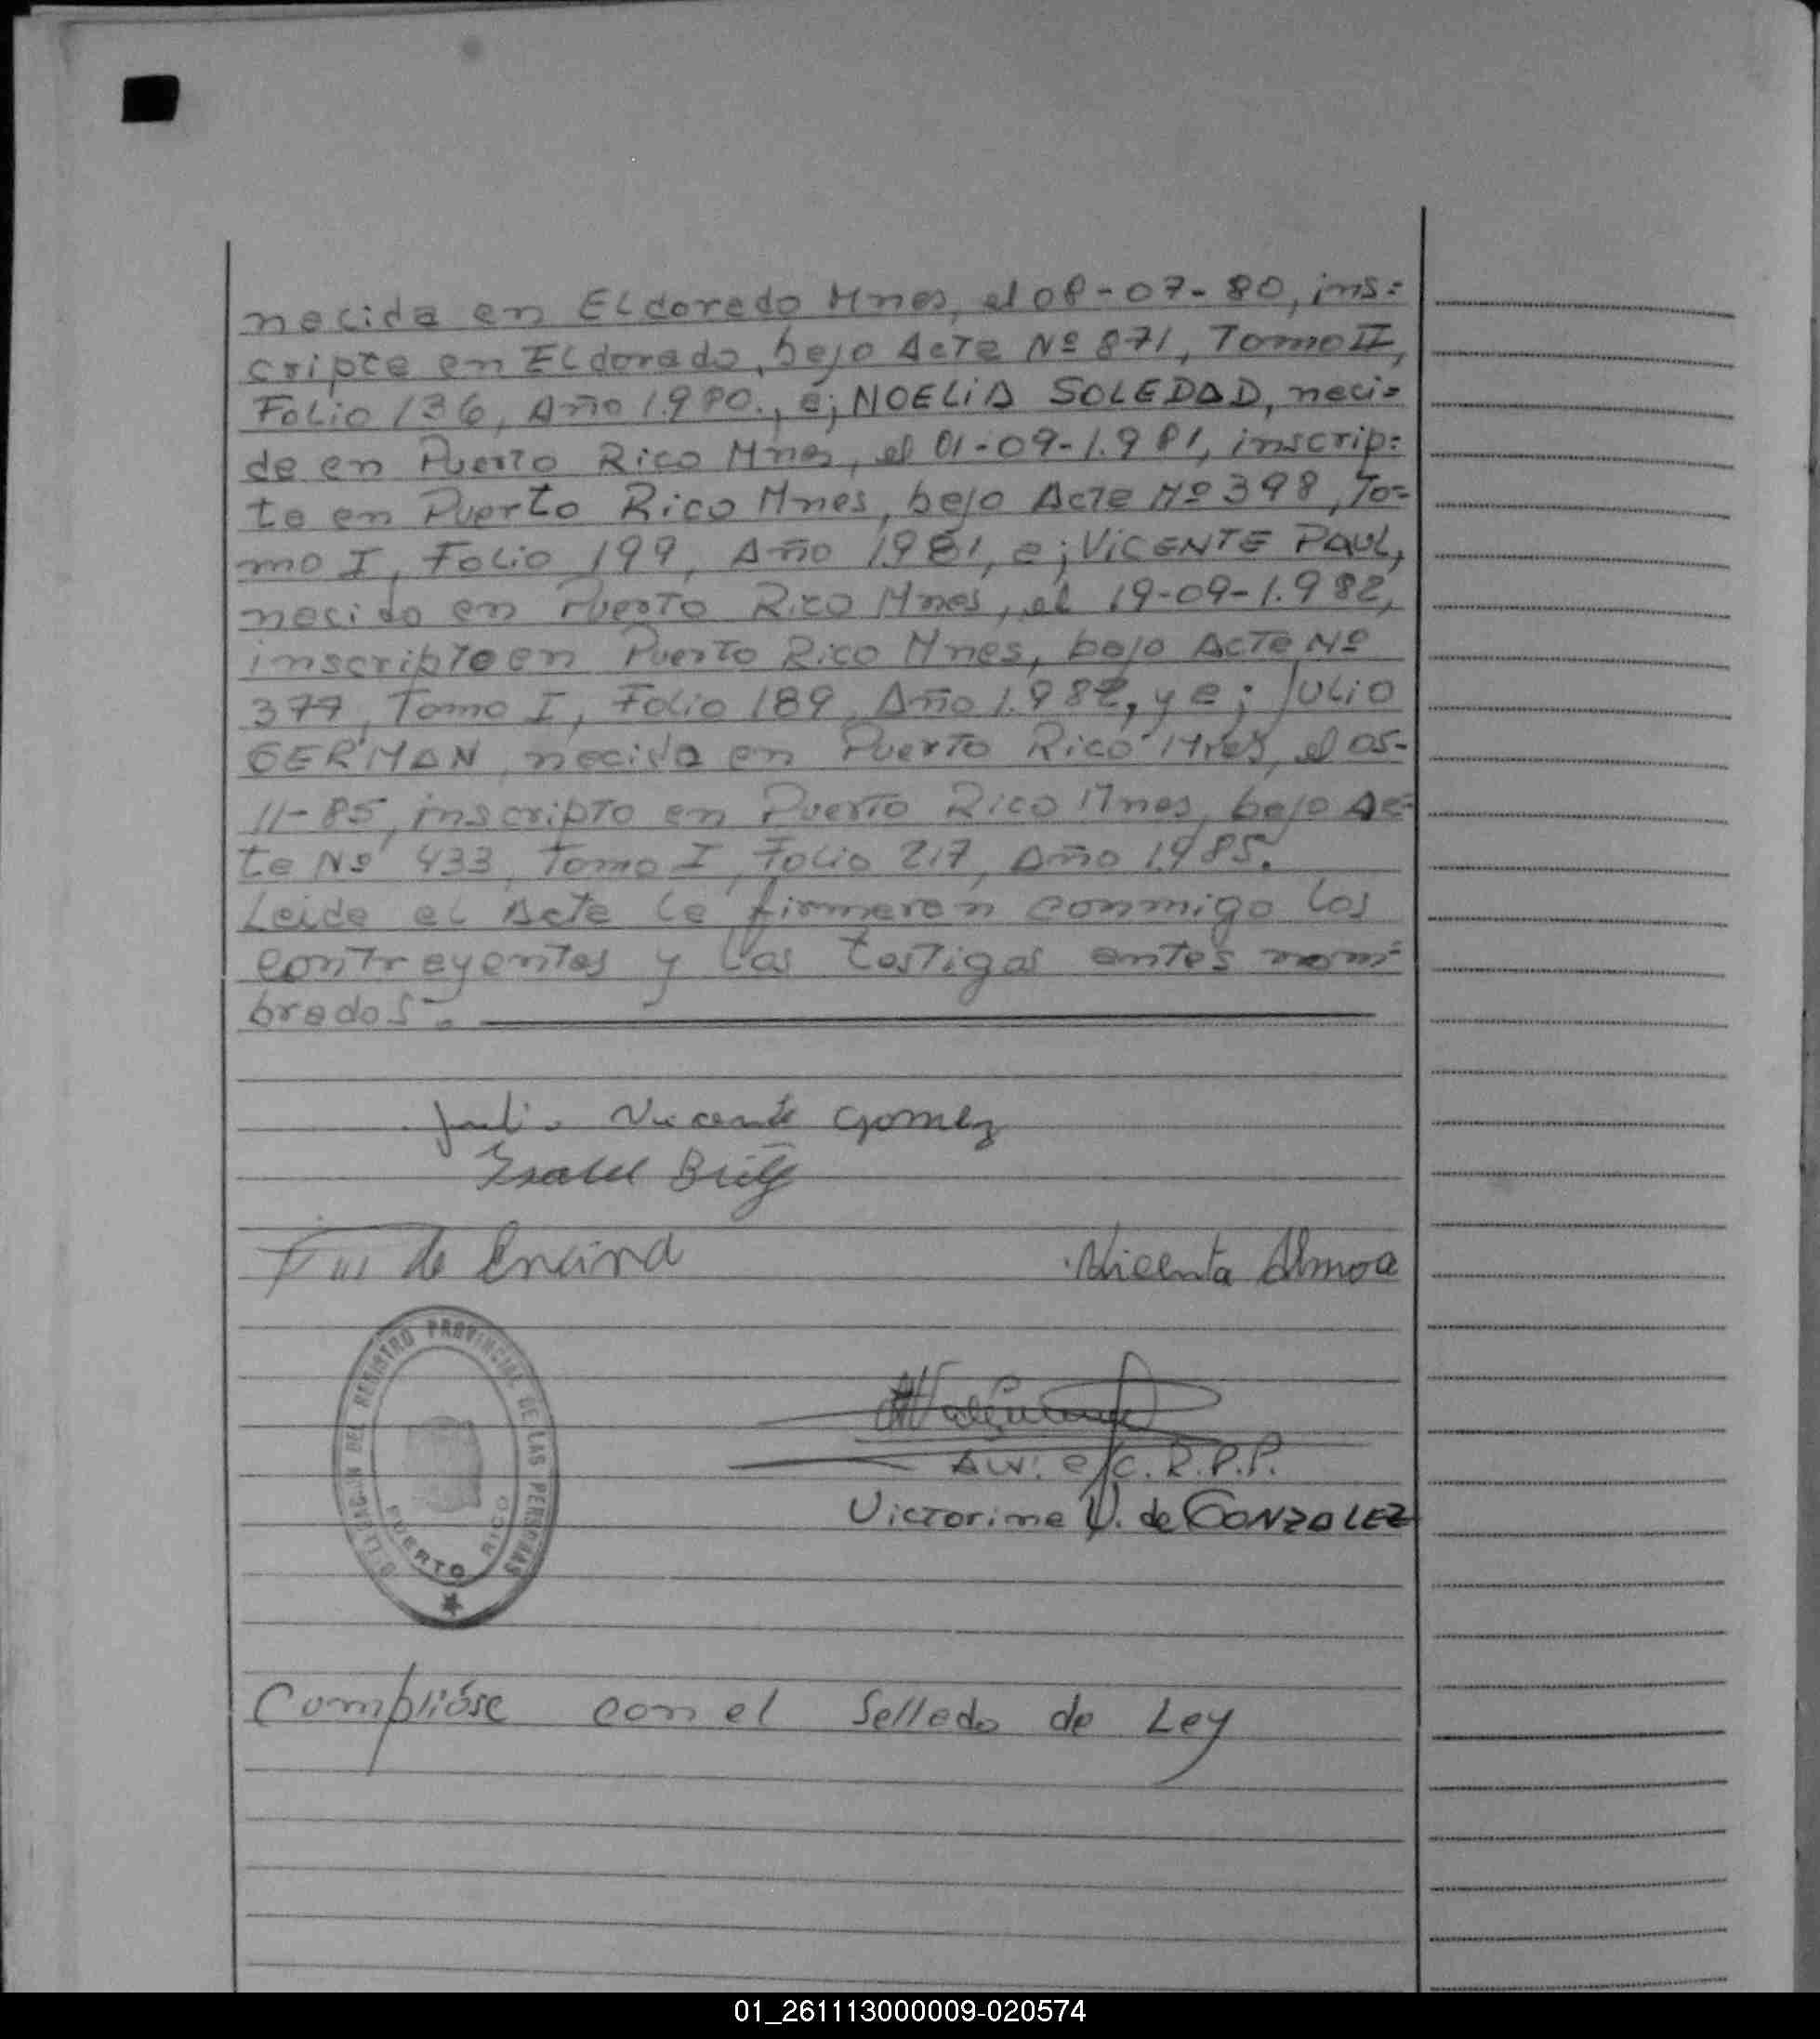 nacida en ELdorado Mnes, el 08-07-80, ins=
cripta en ELdorado, bajo Acta Nº 871, Tomo II,
Folio 136, Año 1.980., a; NOELIA SOLEDAD, naci=
da en Puerto Rico Mnes, el 01-09-1.981, inscrip=
ta en Puerto Rico Mnes, bajo Acta Nº 398, To=
mo I, Folio 199, Año 1981, a; VICENTE PAUL,
nacido en Puerto Rico Mnes, el 19-09-1.982,
inscripto en Puerto Rico Mnes, bajo Acta Nº
377, Tomo I, Folio 189, Año 1.982, y a; JULIO
GERMAN, nacido en Puerto Rico Mnes, el 05-
11-85, inscripto en Puerto Rico Mnes, bajo Ac=
ta Nº 433, Tomo I, Folio 217, Año 1985.
Leida el Acta la firmaron conmigo los
contrayentes y los testigos antes nom=
brados.
Julio Vicente Gomez
Isabel Brítez
de Encina
Vicenta Almoa
AUX. e/c. R.P.P.
Victorina V. de GONZALEZ
DELEGACION DEL REGISTRO PROVINCIAL DE LAS PERSONAS
PUERTO RICO
Complióse con el Sellado de Ley
01_261113000009-020574